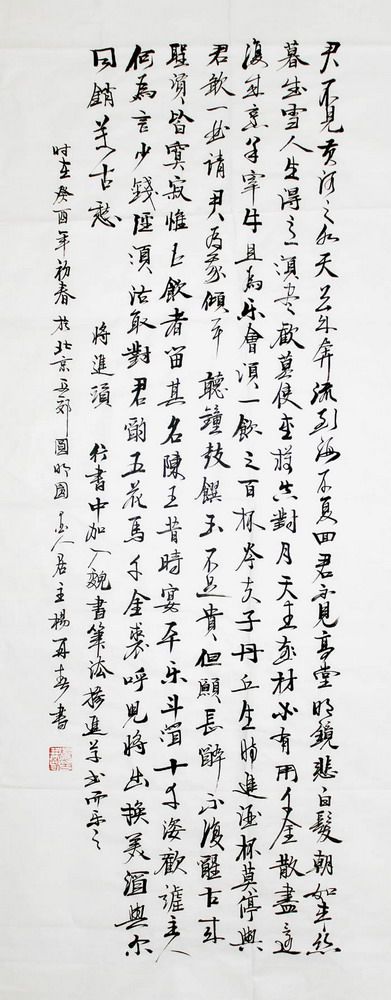 君不見黃河之水天上来奔流到海不复回君不見高堂明鏡悲白髮朝如青絲
暮成雪人生得意須尽歡莫使金樽空對月天生我材必有用千金散盡還
復来烹羊宰牛且為乐會須一飲三百杯岑夫子丹丘生将進酒杯莫停與
君歌一曲請君为我傾耳聽鐘鼓饌玉不足貴但願長醉不復醒古来
聖賢皆寞寂惟有飲者留其名陳王昔時宴平乐斗酒十千恣歡謔主人
何為言少錢徑須沽取對君酌五花馬千金裘呼兒将出換美酒與尔
同銷萬古愁
將進酒 行書中加入魏書筆法 進草书而乐之
时在癸酉年初春於北京西郊圆明园墨人居主楊再春書